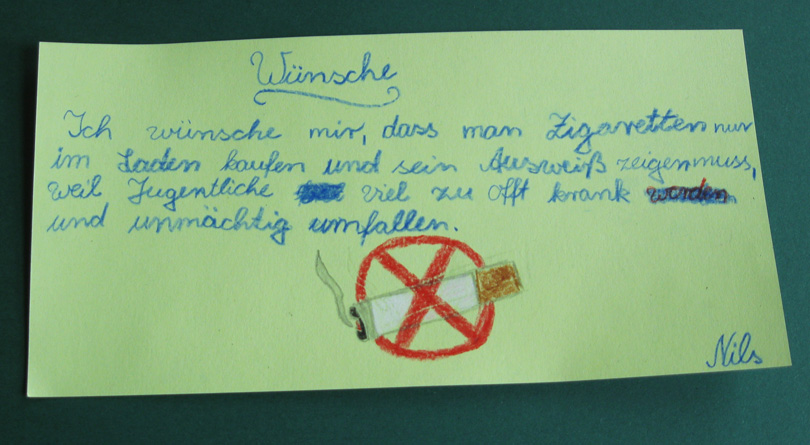 Wünsche
Ich wünsche mir, dass man Zigaretten nur
im Laden kaufen und sein Ausweiß zeigen muss,
weil Jugentliche viel zu offt krank werden
und unmächtig umfallen.
Nils